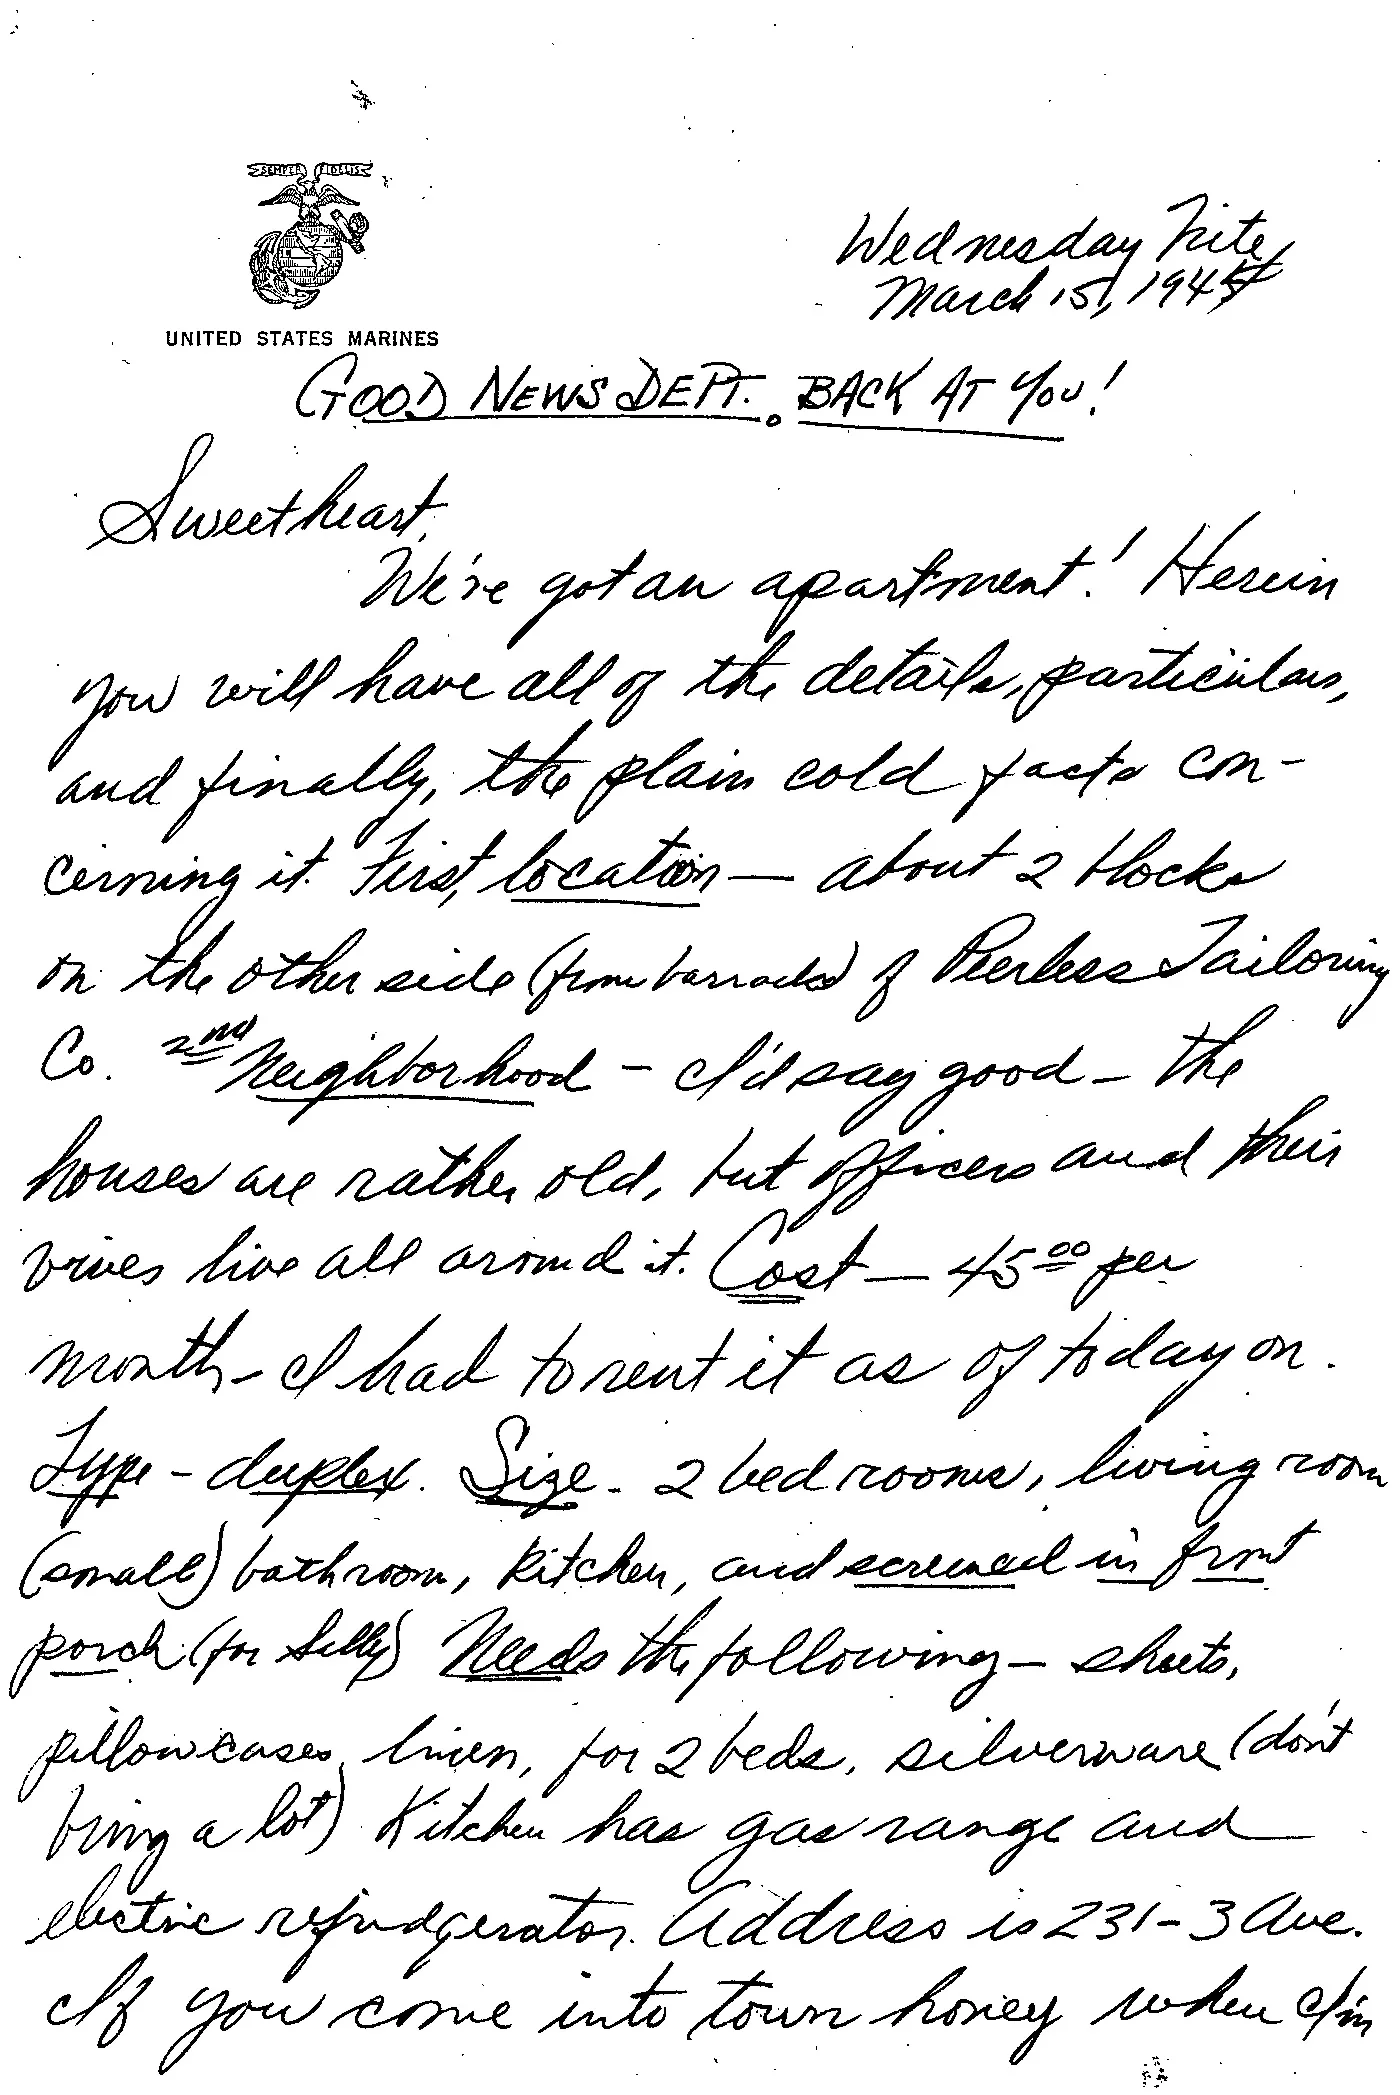 SEMPER FIDELIS
UNITED STATES MARINES
Wednesday Nite,
March 15, 1944
GOOD NEWS DEPT. BACK AT YOU!
Sweetheart,
We've got an apartment! Herein
you will have all of the details, particulars,
and finally, the plain cold facts con-
cerning it. First, location — about 2 blocks
on the other side (from barracks) of Peerless Tailoring
Co. 2nd Neighborhood — I'd say good — the
houses are rather old, but officers and their
wives live all around it. Cost — 45.00 per
month — I had to rent it as of today on.
Type - duplex. Size - 2 bed rooms, living room
(small) bathroom, kitchen, and screened in front
porch (for Silly) Needs the following — sheets,
pillowcases, linen, for 2 beds, silverware (don't
bring a lot) Kitchen has gas range and
electric refrudgerator. Address is 231-3 Ave.
If you come into town honey when I'm